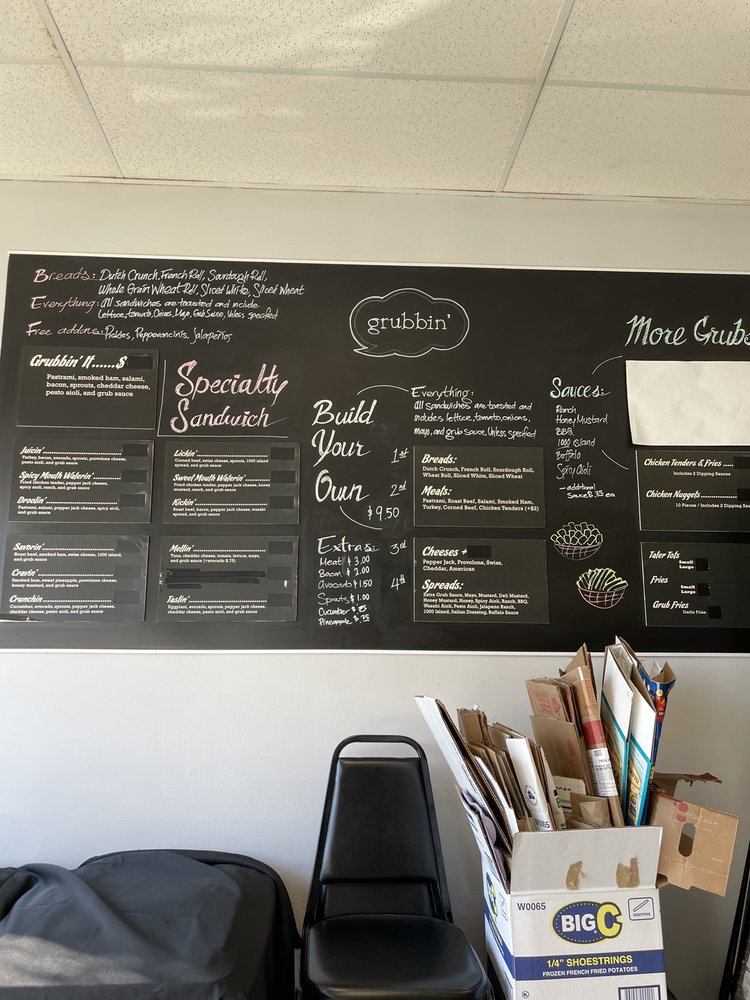 Breads: Dutch Crunch, French Roll, Sourdough Roll,
Whole Grain Wheat Roll, Sliced White, Sliced Wheat
Everything: All sandwiches are toasted and include
Lettuce, tomato, Onions, Mayo, Grub Sauce, Unless specified
Free addons: Pickles, Pepperoncinis, Jalapeños
Grubbin' It......$
Pastrami, smoked ham, salami,
bacon, sprouts, cheddar cheese,
pesto aioli, and grub sauce
Specialty
Sandwich
Juicin'
Turkey, bacon, avocado, sprouts, provolone cheese,
pesto aioli, and grub sauce
Spicy Mouth Waterin'
Fried chicken tender, pepper jack cheese,
spicy aioli, ranch, and grub sauce
Droolin'
Pastrami, salami, pepper jack cheese, spicy aioli,
and grub sauce
Lickin'
Corned beef, swiss cheese, sprouts, 1000 island
spread, and grub sauce
Sweet Mouth Waterin'
Fried chicken tender, pepper jack cheese, honey
mustard, ranch, and grub sauce
Kickin'
Roast beef, bacon, pepper jack cheese, wasabi
spread, and grub sauce
Savorin'
Roast beef, smoked ham, swiss cheese, 1000 island,
and grub sauce
Cravin'
Smoked ham, sweet pineapple, provolone cheese,
honey mustard, and grub sauce
Crunchin'
Cucumber, avocado, sprouts, pepper jack cheese,
cheddar cheese, pesto aioli, and grub sauce
Meltin'
Tuna, cheddar cheese, tomato, lettuce, mayo,
and grub sauce (+avocado $.75)
Tastin'
Eggplant, avocado, sprouts, pepper jack cheese,
cheddar cheese, pesto aioli, and grub sauce
grubbin'
Build
Your
Own
$9.50
Everything:
All sandwiches are toasted and
includes lettuce, tomato, onions,
mayo, and grub sauce, Unless specified
1st
Breads:
Dutch Crunch, French Roll, Sourdough Roll,
Wheat Roll, Sliced White, Sliced Wheat
2nd
Meats:
Pastrami, Roast Beef, Salami, Smoked Ham,
Turkey, Corned Beef, Chicken Tenders (+$2)
3rd
Cheeses +
Pepper Jack, Provolone, Swiss,
Cheddar, American
4th
Spreads:
Extra Grub Sauce, Mayo, Mustard, Deli Mustard,
Honey Mustard, Honey, Spicy Aioli, Ranch, BBQ,
Wasabi Aioli, Pesto Aioli, Jalapeno Ranch,
1000 Island, Italian Dressing, Buffalo Sauce
Extras:
Meat $3.00
Bacon $2.00
Avocado $1.50
Sprouts $1.00
Cucumber $.75
Pineapple $.75
Sauces:
Ranch
Honey Mustard
BBQ
1000 Island
Buffalo
Spicy Aioli
additional
Sauce $.35 ea
More Grubs
Chicken Tenders & Fries
Includes 2 Dipping Sauces
Chicken Nuggets
10 Pieces / Includes 2 Dipping
Tater Tots
Small
Large
Fries
Small
Large
Grub Fries
Garlic Fries
W0065
BIG C
SHOESTRING
1/4" SHOESTRINGS
FROZEN FRENCH FRIED POTATOES